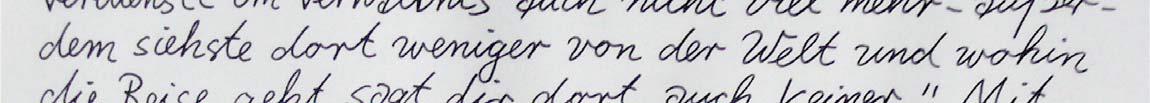 verdienste im Verhältnis auch nicht viel mehr - außer-
dem siehste dort weniger von der Welt und wohin
die Reise geht sagt dir dort auch keiner." Mit